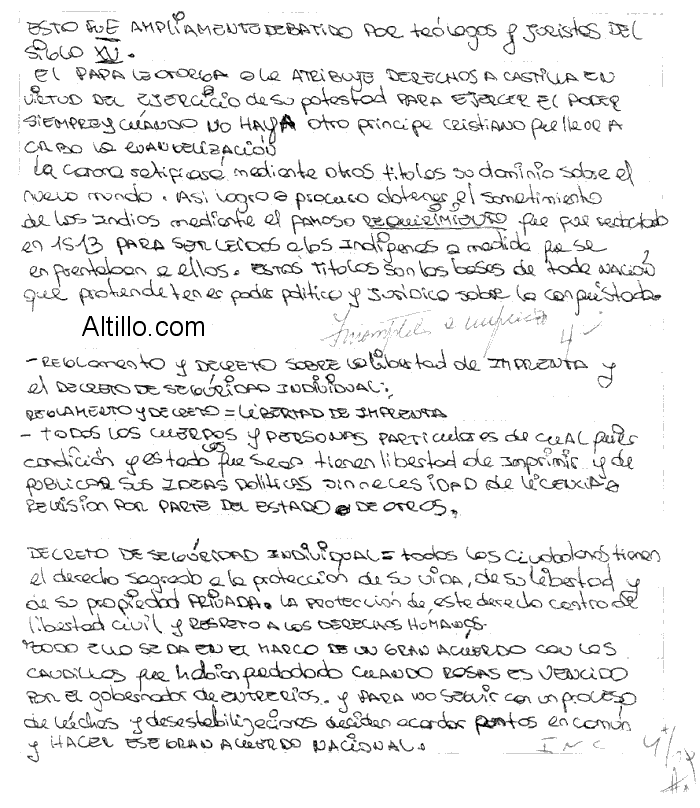 ESTO FUE AMPLIAMENTE DEBATIDO POR teólogos y juristas DEL
SIGLO XV.
EL PAPA LE OTORGA o le ATRIBUYE DERECHOS A CASTILLA EN
VIRTUD DEL EJERCICIO de su potestad PARA EJERCER EL PODER
SIEMPRE y CUÁNDO NO HAYA otro príncipe cristiano que lleve A
CABO LA EVANGELIZACIÓN
La corona ratificará mediante otros títulos su dominio sobre el
nuevo mundo. Así logro o procuro obtener el sometimiento
de los Indios mediante el famoso REQUIRIMIENTO que fue redactado
en 1513 PARA SER LEÍDOS a los Indígenas a medida que se
enfrentaban a ellos. ESTOS títulos son las bases de toda NACIÓN
que pretende tener poder político y jurídico sobre la conquistada.
Altillo.com
4
- REGLAMENTO y DECRETO SOBRE la libertad de IMPRENTA y
el DECRETO DE SEGURIDAD INDIVIDUAL:
REGLAMENTO y DECRETO = LIBERTAD DE IMPRENTA
- TODOS LOS CUERPOS y PERSONAS PARTICULARES de CUALquier
condición y estado que sean tienen libertad de Imprimir y de
PUBLICAR SUS IDEAS POLÍTICAS sin necesIDAD de LICENCIA o
REVISIÓN POR PARTE DEL ESTADO o DE OTROS.
DECRETO DE SEGURIDAD INDIVIDUAL = todos los ciudadanos tienen
el derecho sagrado a la protección de su VIDA, de su libertad y
de su propiedad PRIVADA. LA PROTECCIÓN de este derecho centro de
libertad civil y RESPETO A LOS DERECHOS HUMANOS.
TODO ELLO SE DA EN EL MARCO DE UN GRAN ACUERDO CON LOS
CAUDILLOS que habían quedado CUANDO ROSAS ES VENCIDO
POR EL gobernador de ENTRE RÍOS. y PARA NO SEGUIR con un proceso
de luchas y desestabilizaciones deciden acordar puntos en común
y HACER ESE GRAN ACUERDO NACIONAL.
INC 4